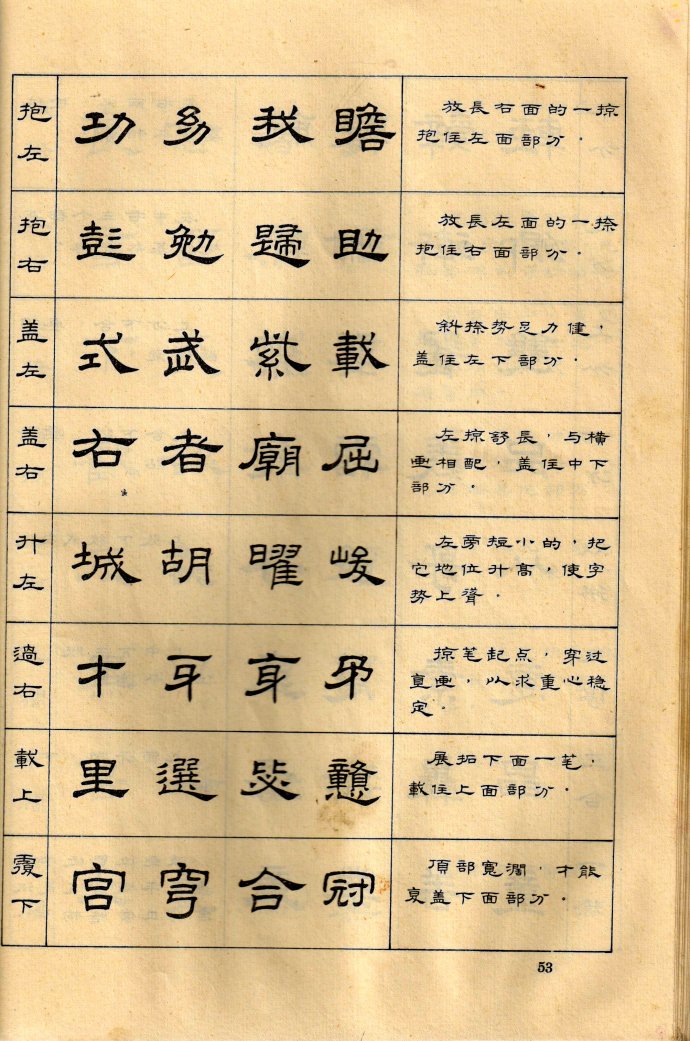 抱左
功 幼 我 瞻
放長右面的一掠
抱住左面部分．
抱右
彭 勉 歸 助
放長左面的一捺
抱住右面部分．
盖左
式 武 紫 載
斜捺势足力健，
盖住左下部分．
盖右
右 者 廟 屈
左掠舒長，与横
画相配，盖住中下
部分．
升左
城 胡 曜 峻
左旁短小的，把
它地位升高，使字
势上聳．
過右
才 牙
掠笔起点，穿过
直画，以求重心稳
定．
載上
里 選 毖 戇
展拓下面一笔，
載住上面部分．
覆下
宫 穹 合 冠
頂部寬濶，才能
盖下面部分．
53